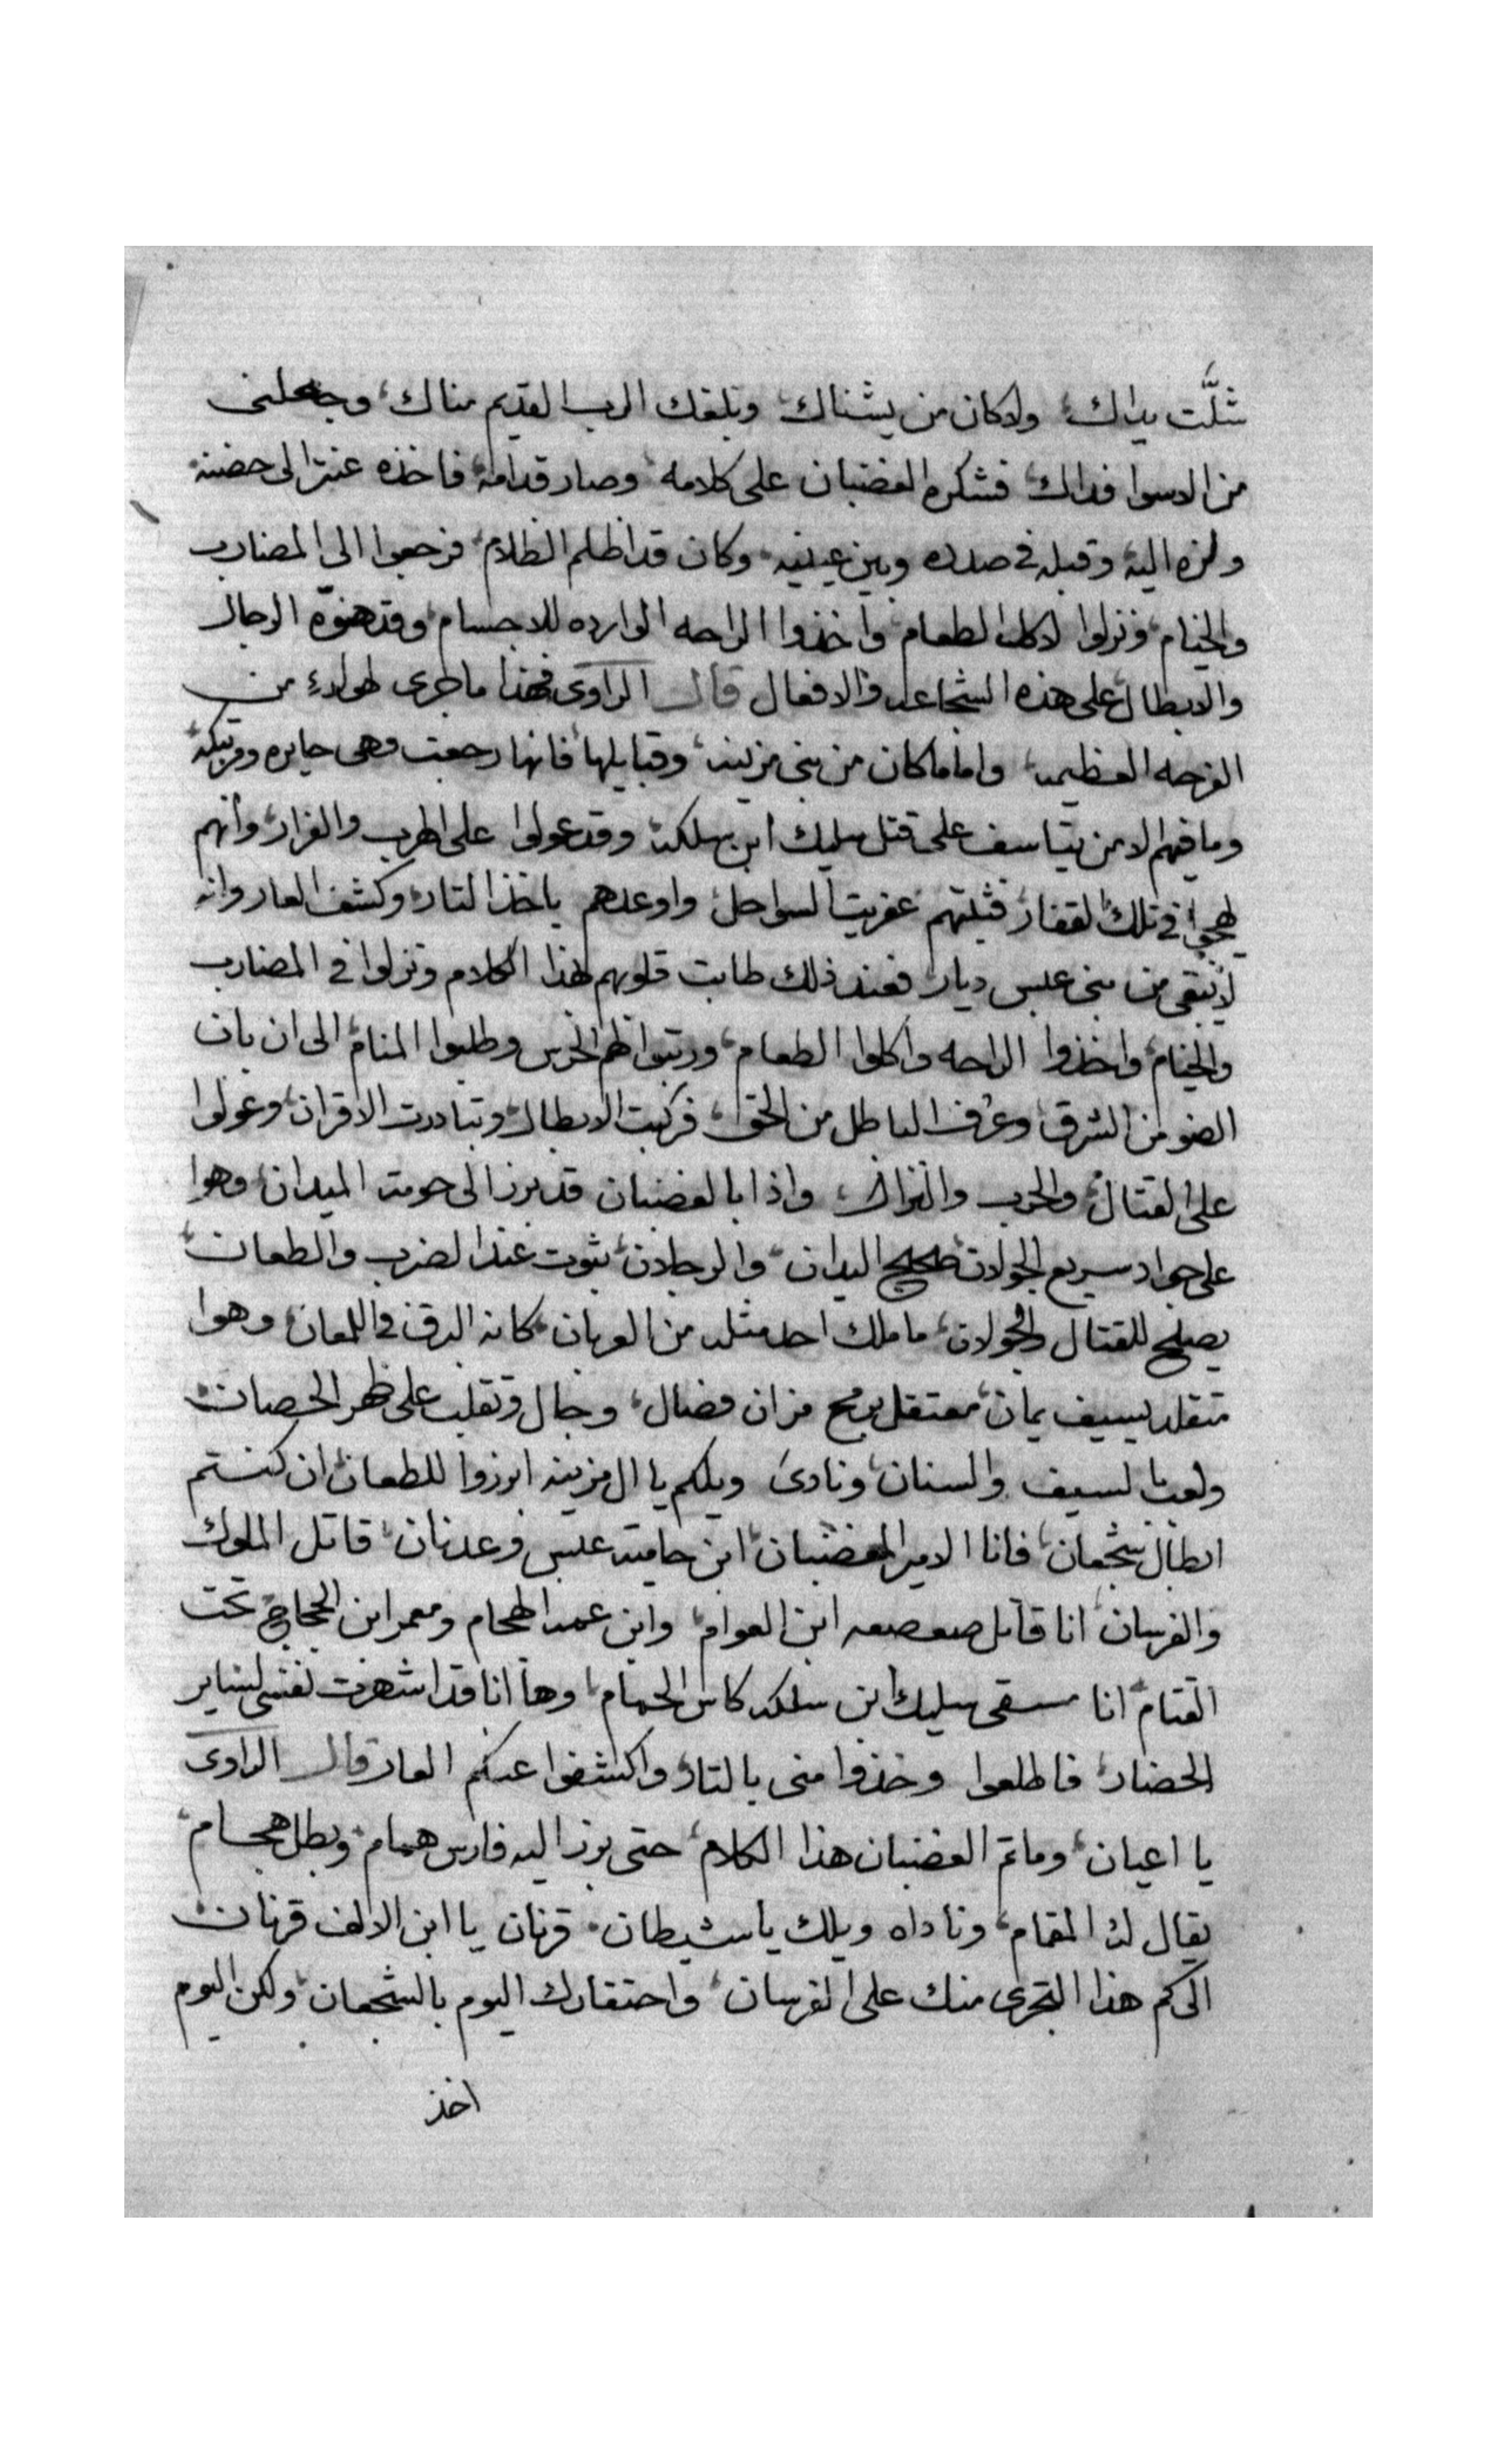 شلَّت يداك ولا كان من يشناك وبلغك الرب القديم مناك وجعلنى
من الاسوا فداك فشكره الغضبان على كلامه وصار قدامه فاخذه عنتر الى حضنه
ولزه اليه وقبله فى صدره وبين عينيه وكان قد اظلم الظلام فرجعوا الى المضارب
والخيام ونزلوا لاكل الطعام واخذوا الراحه الوارده للاجسام وقد هنوّه الرجال
والابطال على هذه الشجاعه والافعال قال الراوى فهذا ما جرى لهولاء من
الفرحه العظيمه واما ما كان من بنى مزينه وقبايلها فانها رجعت وهى حايره ومرتبكه
وما فيهم الا من يتاسف على قتل سليك ابن سلكه وقد عولوا على الهرب والفرار وانهم
يهجوا فى تلك القفار فثبتهم عفريت السواحل واوعدهم باخذ التار وكشف العار وانه
لا يبقى من بنى عبس ديار فعند ذلك طابت قلوبهم لهذا الكلام ونزلوا فى المضارب
والخيام واخذوا الراحه واكلوا الطعام ورتبوا لهم الحرس وطلبوا المنام الى ان بان
الضو من الشرق وعرف الباطل من الحق فركبت الابطال وتبادرت الاقران وعولوا
على القتال والحرب والنزال واذا بالغضبان قد برز الى حومة الميدان وهوا
على جواد سريع الجولان صحيح اليدان والرجلان يثوت عند الضرب والطعان
يصلح للقتال والجولان ما ملك احد مثله من العربان كانه البرق فى اللمعان وهوا
متقلد بسيف يمان معتقل برمح مران فصال وجال وتقلب على ظهر الحصان
ولعب بالسيف والسنان ونادى ويلكم يا ال مزينه ابرزوا للطعان ان كنتم
ابطال شجعان فانا الامير الغضبان ابن حامية عبس وعدنان قاتل الملوك
والفرسان انا قاتل صعصعه ابن العوام وابن عمه الهجام ومعمر ابن الحجاج تحت
القتام انا مسقى سليك ابن سلكه كاس الحمام وها انا قد اشهرت نفسى لساير
الحضار فاطلعوا وخذوا منى بالتار واكشفوا عنكم العار قال الراوى
يا اعيان وما تم الغضبان هذا الكلام حتى برز اليه فارس همام وبطل هجام
يقال له المقام وناداه ويلك يا شيطان قرنان يا ابن الالف قرنان
الى كم هذا التجرى منك على الفرسان واحتقارك اليوم بالشجعان ولكن اليوم
اخذ